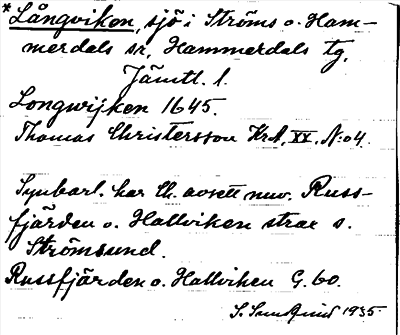 * Långviken, sjö i Ströms o. Ham-
merdals sr, Hammerdals tg,
Jämtl. l.
Longwijken 1645.
Thomas Christersson Krt. XX. N:o 4.
Synbarl. har Ch. avsett nuv. Russ-
fjärden o. Hallviken strax s.
Strömsund.
Russfjärden o. Hallviken G. 60.
1935